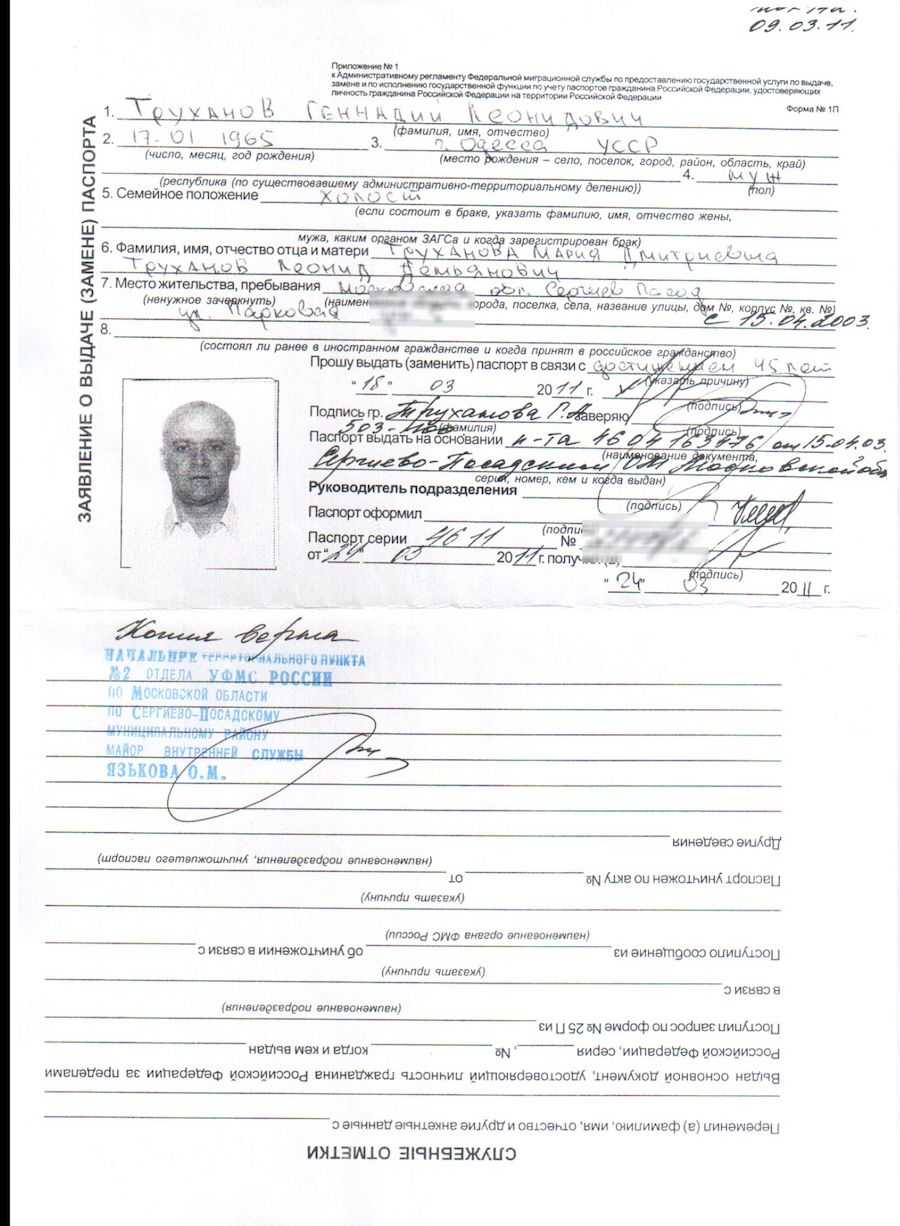 09.03.11.
Приложение № 1
к Административному регламенту Федеральной миграционной службы по предоставлению государственной услуги по выдаче,
замене и по исполнению государственной функции по учету паспортов гражданина Российской Федерации, удостоверяющих
личность гражданина Российской Федерации на территории Российской Федерации
Форма № 1П
ЗАЯВЛЕНИЕ О ВЫДАЧЕ (ЗАМЕНЕ) ПАСПОРТА
1. Труханов Геннадий Леонидович
(фамилия, имя, отчество)
2. 17.01.1965 3. г. Одесса УССР
(число, месяц, год рождения) (место рождения – село, поселок, город, район, область, край)
4. муж
(республика (по существовавшему административно-территориальному делению)) (пол)
5. Семейное положение холост
(если состоит в браке, указать фамилию, имя, отчество жены,
мужа, каким органом ЗАГСа и когда зарегистрирован брак)
6. Фамилия, имя, отчество отца и матери Труханова Мария Дмитриевна
Труханов Леонид Демьянович
7. Место жительства, пребывания Московская обл. Сергиев Посад
(ненужное зачеркнуть) города, поселка, села, название улицы, дом №, корпус №, кв. №)
ул. Парковая с 15.04.2003.
8.
(состоял ли ранее в иностранном гражданстве и когда принят в российское гражданство)
Прошу выдать (заменить) паспорт в связи с достижением 45 лет
(указать причину)
"18" 03 2011 г.
(подпись)
Подпись гр. Труханова Г.Л. заверяю
(фамилия) (подпись)
Паспорт выдать на основании п-та 4604 163476 от 15.04.03.
(наименование документа,
Сергиево-Посадским ОМ Московской обл
серия, номер, кем и когда выдан)
Руководитель подразделения
(подпись)
Паспорт оформил
Паспорт серии 46 11 №
от "24" 03 2011 г. получил(а)
(подпись)
"24" 03 2011 г.
Копия верна
НАЧАЛЬНИК ТЕРРИТОРИАЛЬНОГО ПУНКТА
№2 ОТДЕЛА УФМС РОССИИ
ПО МОСКОВСКОЙ ОБЛАСТИ
ПО СЕРГИЕВО-ПОСАДСКОМУ
МУНИЦИПАЛЬНОМУ РАЙОНУ
МАЙОР ВНУТРЕННЕЙ СЛУЖБЫ
ЯЗЬКОВА О.М.
СЛУЖЕБНЫЕ ОТМЕТКИ
Переменил (а) фамилию, имя, отчество и другие анкетные данные с
Выдан основной документ, удостоверяющий личность гражданина Российской Федерации за пределами
Российской Федерации, серия , № когда и кем выдан
Поступил запрос по форме № 25 П из
(наименование подразделения)
в связи с
(указать причину)
Поступило сообщение из об уничтожении в связи с
(наименование органа ФМС России)
(указать причину)
Паспорт уничтожен по акту № от
(наименование подразделения, уничтожившего паспорт)
Другие сведения